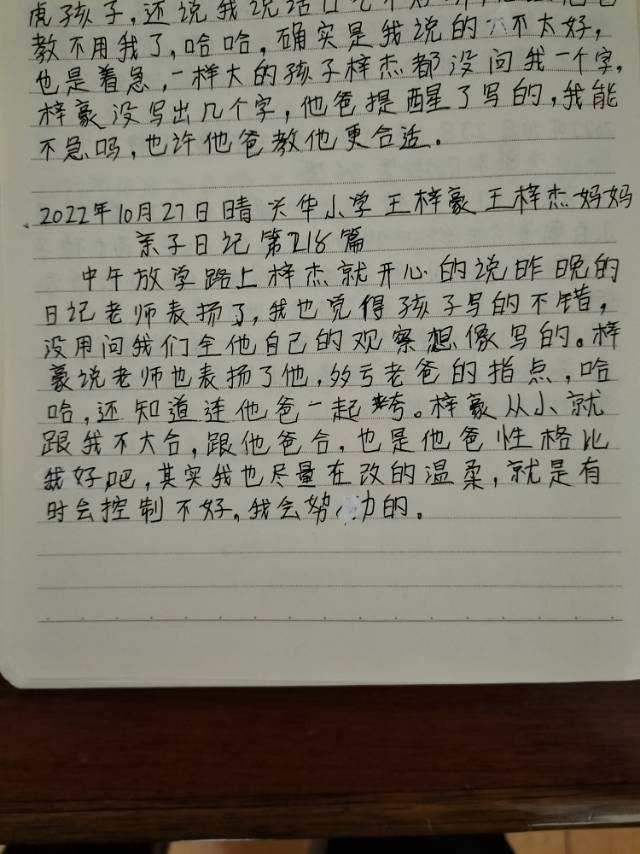 虎孩子,还说我说话
教不用我了,哈哈,确实是我说的不太好,
也是着急,一样大的孩子梓杰都没问我一个字,
梓豪没写出几个字,他爸提醒了写的,我能
不急吗,也许他爸教他更合适.
2022年10月27日晴 兴华小学 王梓豪 王梓杰妈妈
亲子日记第218篇
中午放学路上梓杰就开心的说昨晚的
日记老师表扬了,我也觉得孩子写的不错,
没用问我们全他自己的观察想像写的。梓
豪说老师也表扬了他,多亏老爸的指点,哈
哈,还知道连他爸一起夸。梓豪从小就
跟我不大合,跟他爸合,也是他爸性格比
我好吧,其实我也尽量在改的温柔,就是有
时会控制不好。我会努力的。